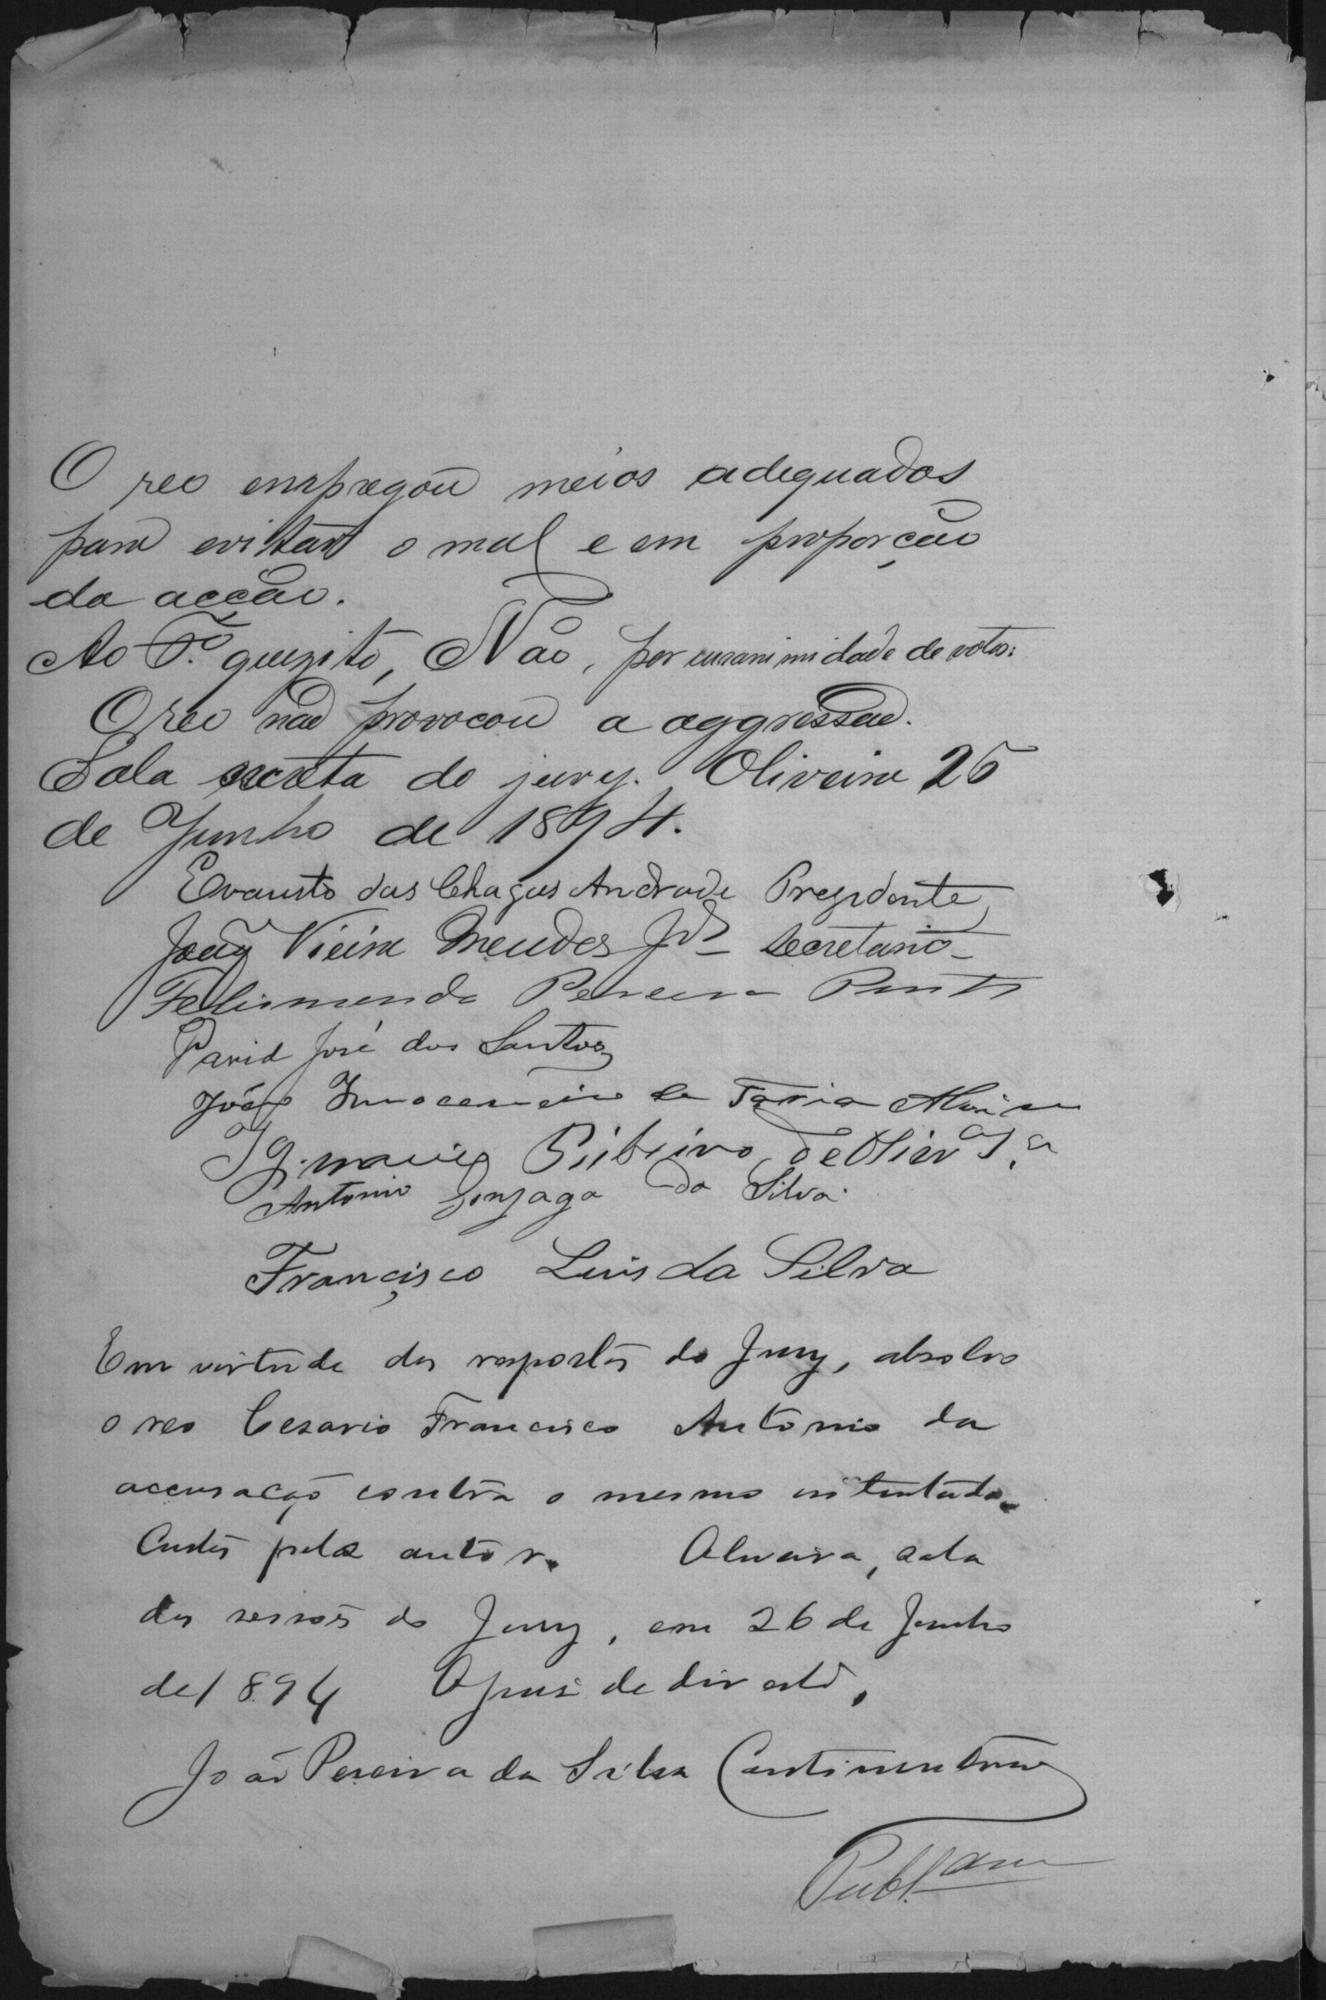 O reo empregou meios adequados
para evitar o mal e em proporção
da acção.
Ao 5.º quezito, Não, por unanimidade de votos:
O reo não provocou a aggressão.
Sala secreta do jury. Oliveira 26
de Junho de 1894.
Evaristo das Chagas Andrade Prezidente
João Vieira Mendes Jor secretario
Felismundo Pereira Pinto
David José dos Santos
João Innocencio de Faria
Ignacio Ribeiro de Olivra
Antonio Gonzaga da Silva.
Francisco Luis da Silva
Em virtude das respostas do Jury, absolvo
o reo Cesario Francisco Antonio da
accusação contra o mesmo intentada.
Custas pelo autor. Oliveira, sala
das sessões do Jury, em 26 de Junho
de 1894 O juiz de direito,
João Pereira da Silva Continentino
Publ.am